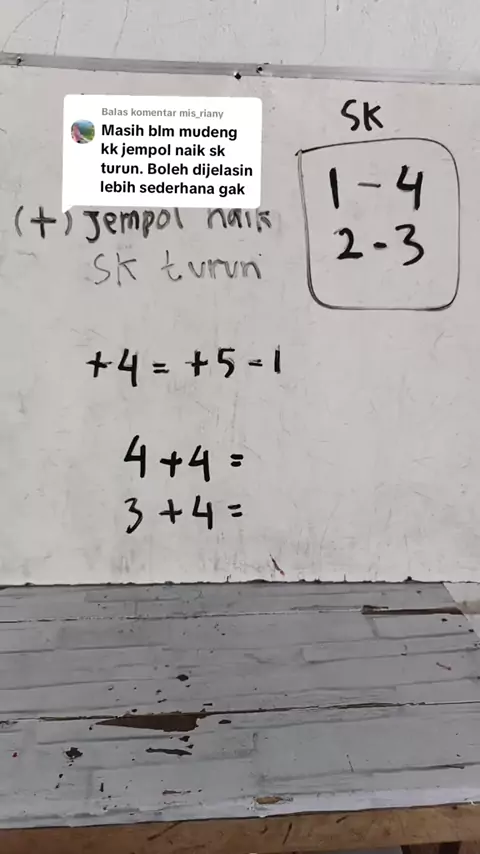 Balas komentar mis_riany
Masih blm mudeng
kk jempol naik sk
turun. Boleh dijelasin
lebih sederhana gak
SK
1 - 4
2 - 3
(+) Jempol naik
SK turun
+4 = +5 - 1
4 + 4 =
3 + 4 =